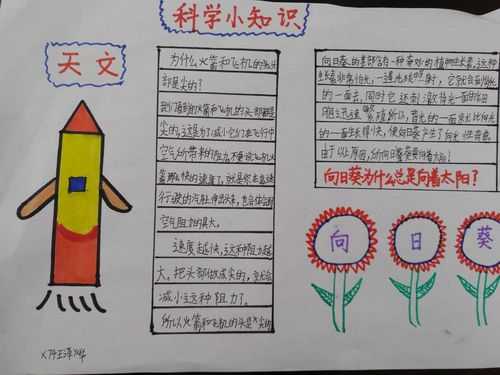 科学小知识
天文
为什么火箭和飞机的头
部是尖的？
我们看到的火箭和飞机的头部都是
尖的，这是为了减小它们在飞行中
空气所带来的阻力，不要说飞机火
箭那么快的速度了，就是你在急速
行驶的汽车里伸出头来，也会体会到
空气阻力的具大。
速度越快，这种阻力越
大，把头部做成尖的，就会
减小这种阻力了。
所以火箭和飞机的头是尖的
向日葵的茎部含有一种奇妙的植物生长素，这种
生长素非常怕光，一遇光线照射，它就会到背光
的一面去，同时它还刺激背光一面的细
胞迅速繁殖所以，背光的一面就比向光
的一面生长得快，使向日葵产生了向光性弯曲
由于以上原因，所向日葵总是向着太阳！
向日葵为什么总是向着太阳？
向
日
葵